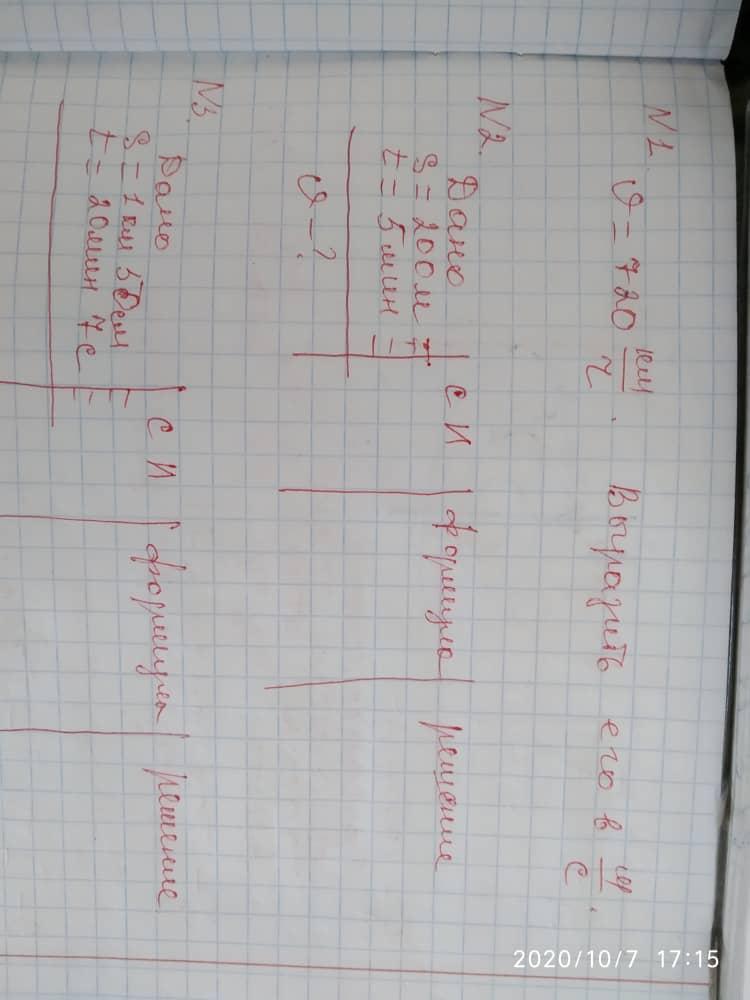 N1. υ = 720 км/ч. Выразить его в м/с.
N2.
Дано | СИ | формула | решение
S = 200м =
t = 5 мин =
υ - ?
N3.
Дано | СИ | формула | решение
t = 20мин 7с =
2020/10/7 17:15